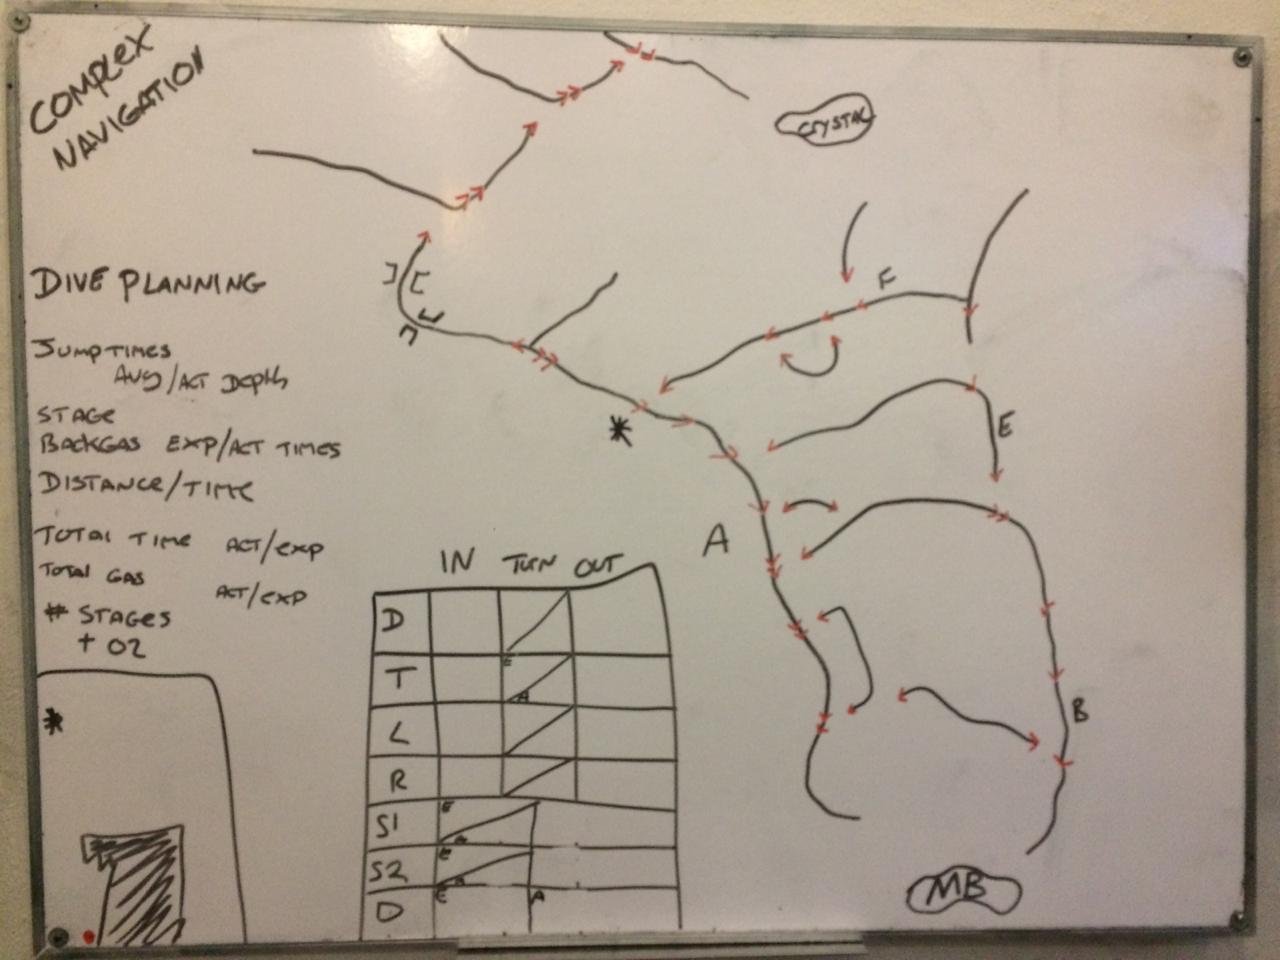 COMPLEX
NAVIGATION
CRYSTAL
DIVE PLANNING
JUMP TIMES
AVG/ACT DEPTH
STAGE
BACKGAS EXP/ACT TIMES
DISTANCE/TIME
TOTAL TIME ACT/EXP
TOTAL GAS
ACT/EXP
# STAGES
+ O2
*
F
E
*
A
B
MB
IN TURN OUT
D
E
T
A
L
R
S1 E
A
S2 E
A
D E A